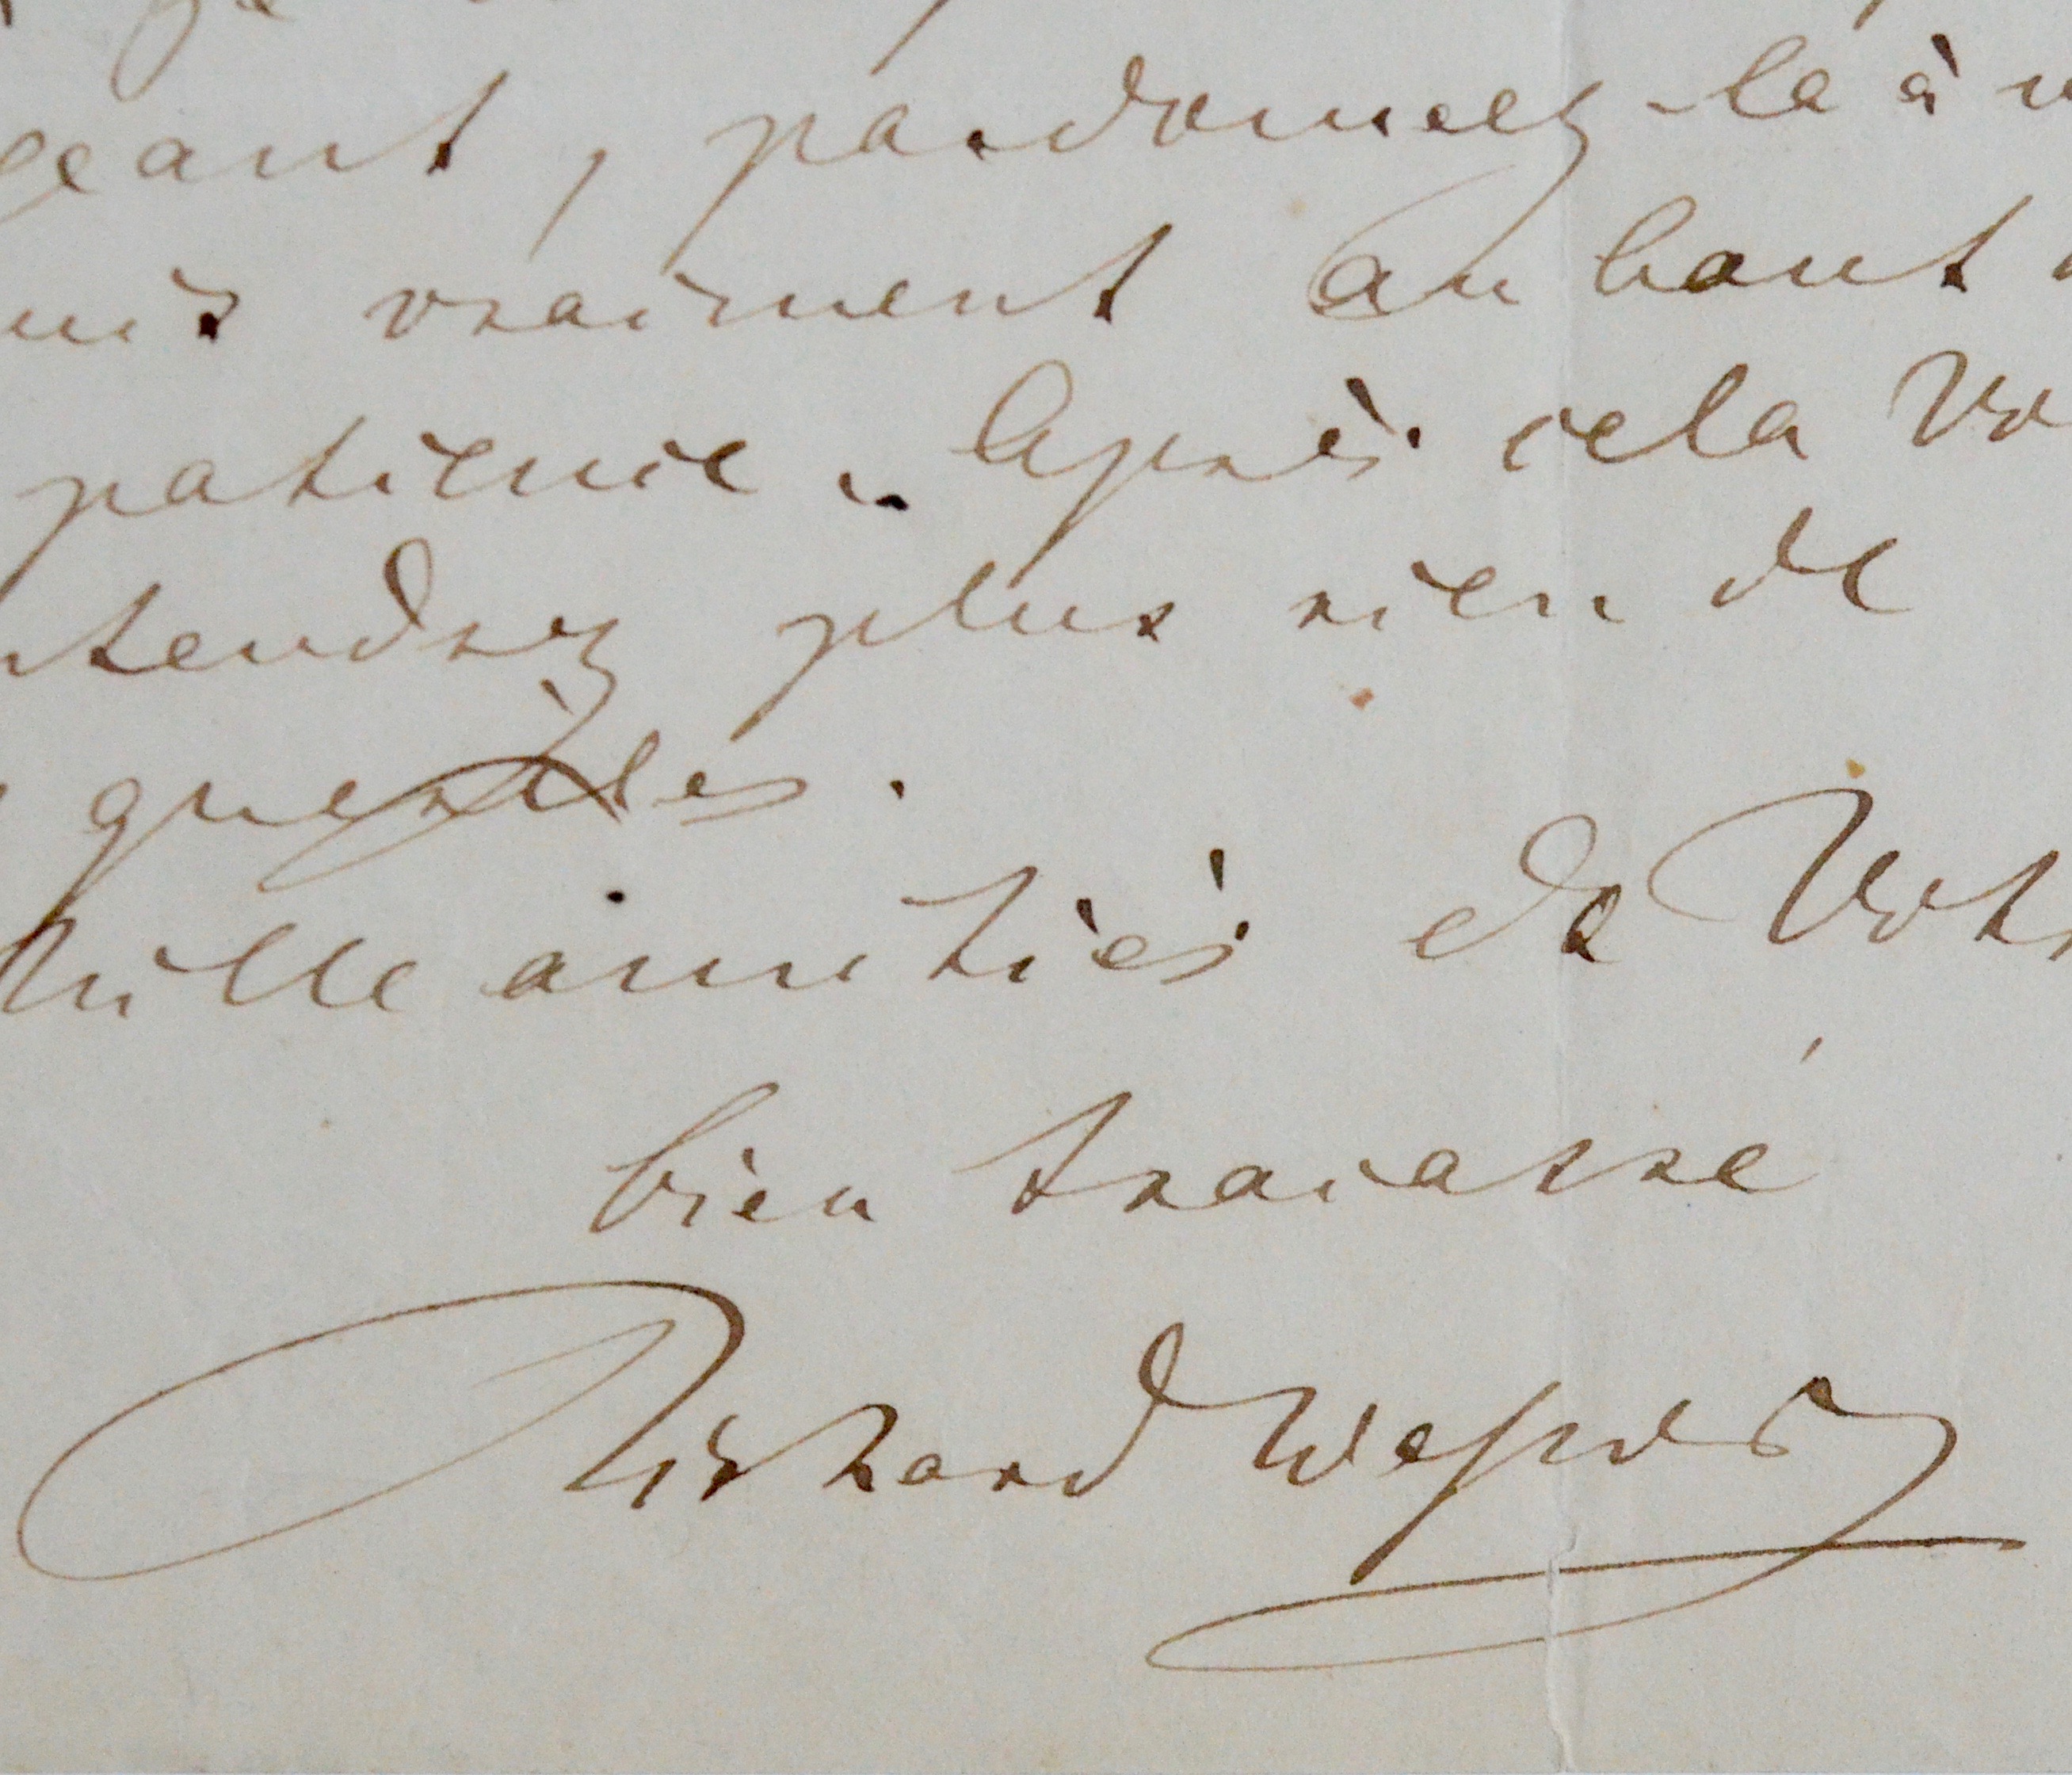 geant, pardonnez-le à
uis vraiment au bout
patience. Après cela Vo
ntendrez plus rien de
querèles.
Mille amitiés de Votr
bien tracassé
Richard Wagner